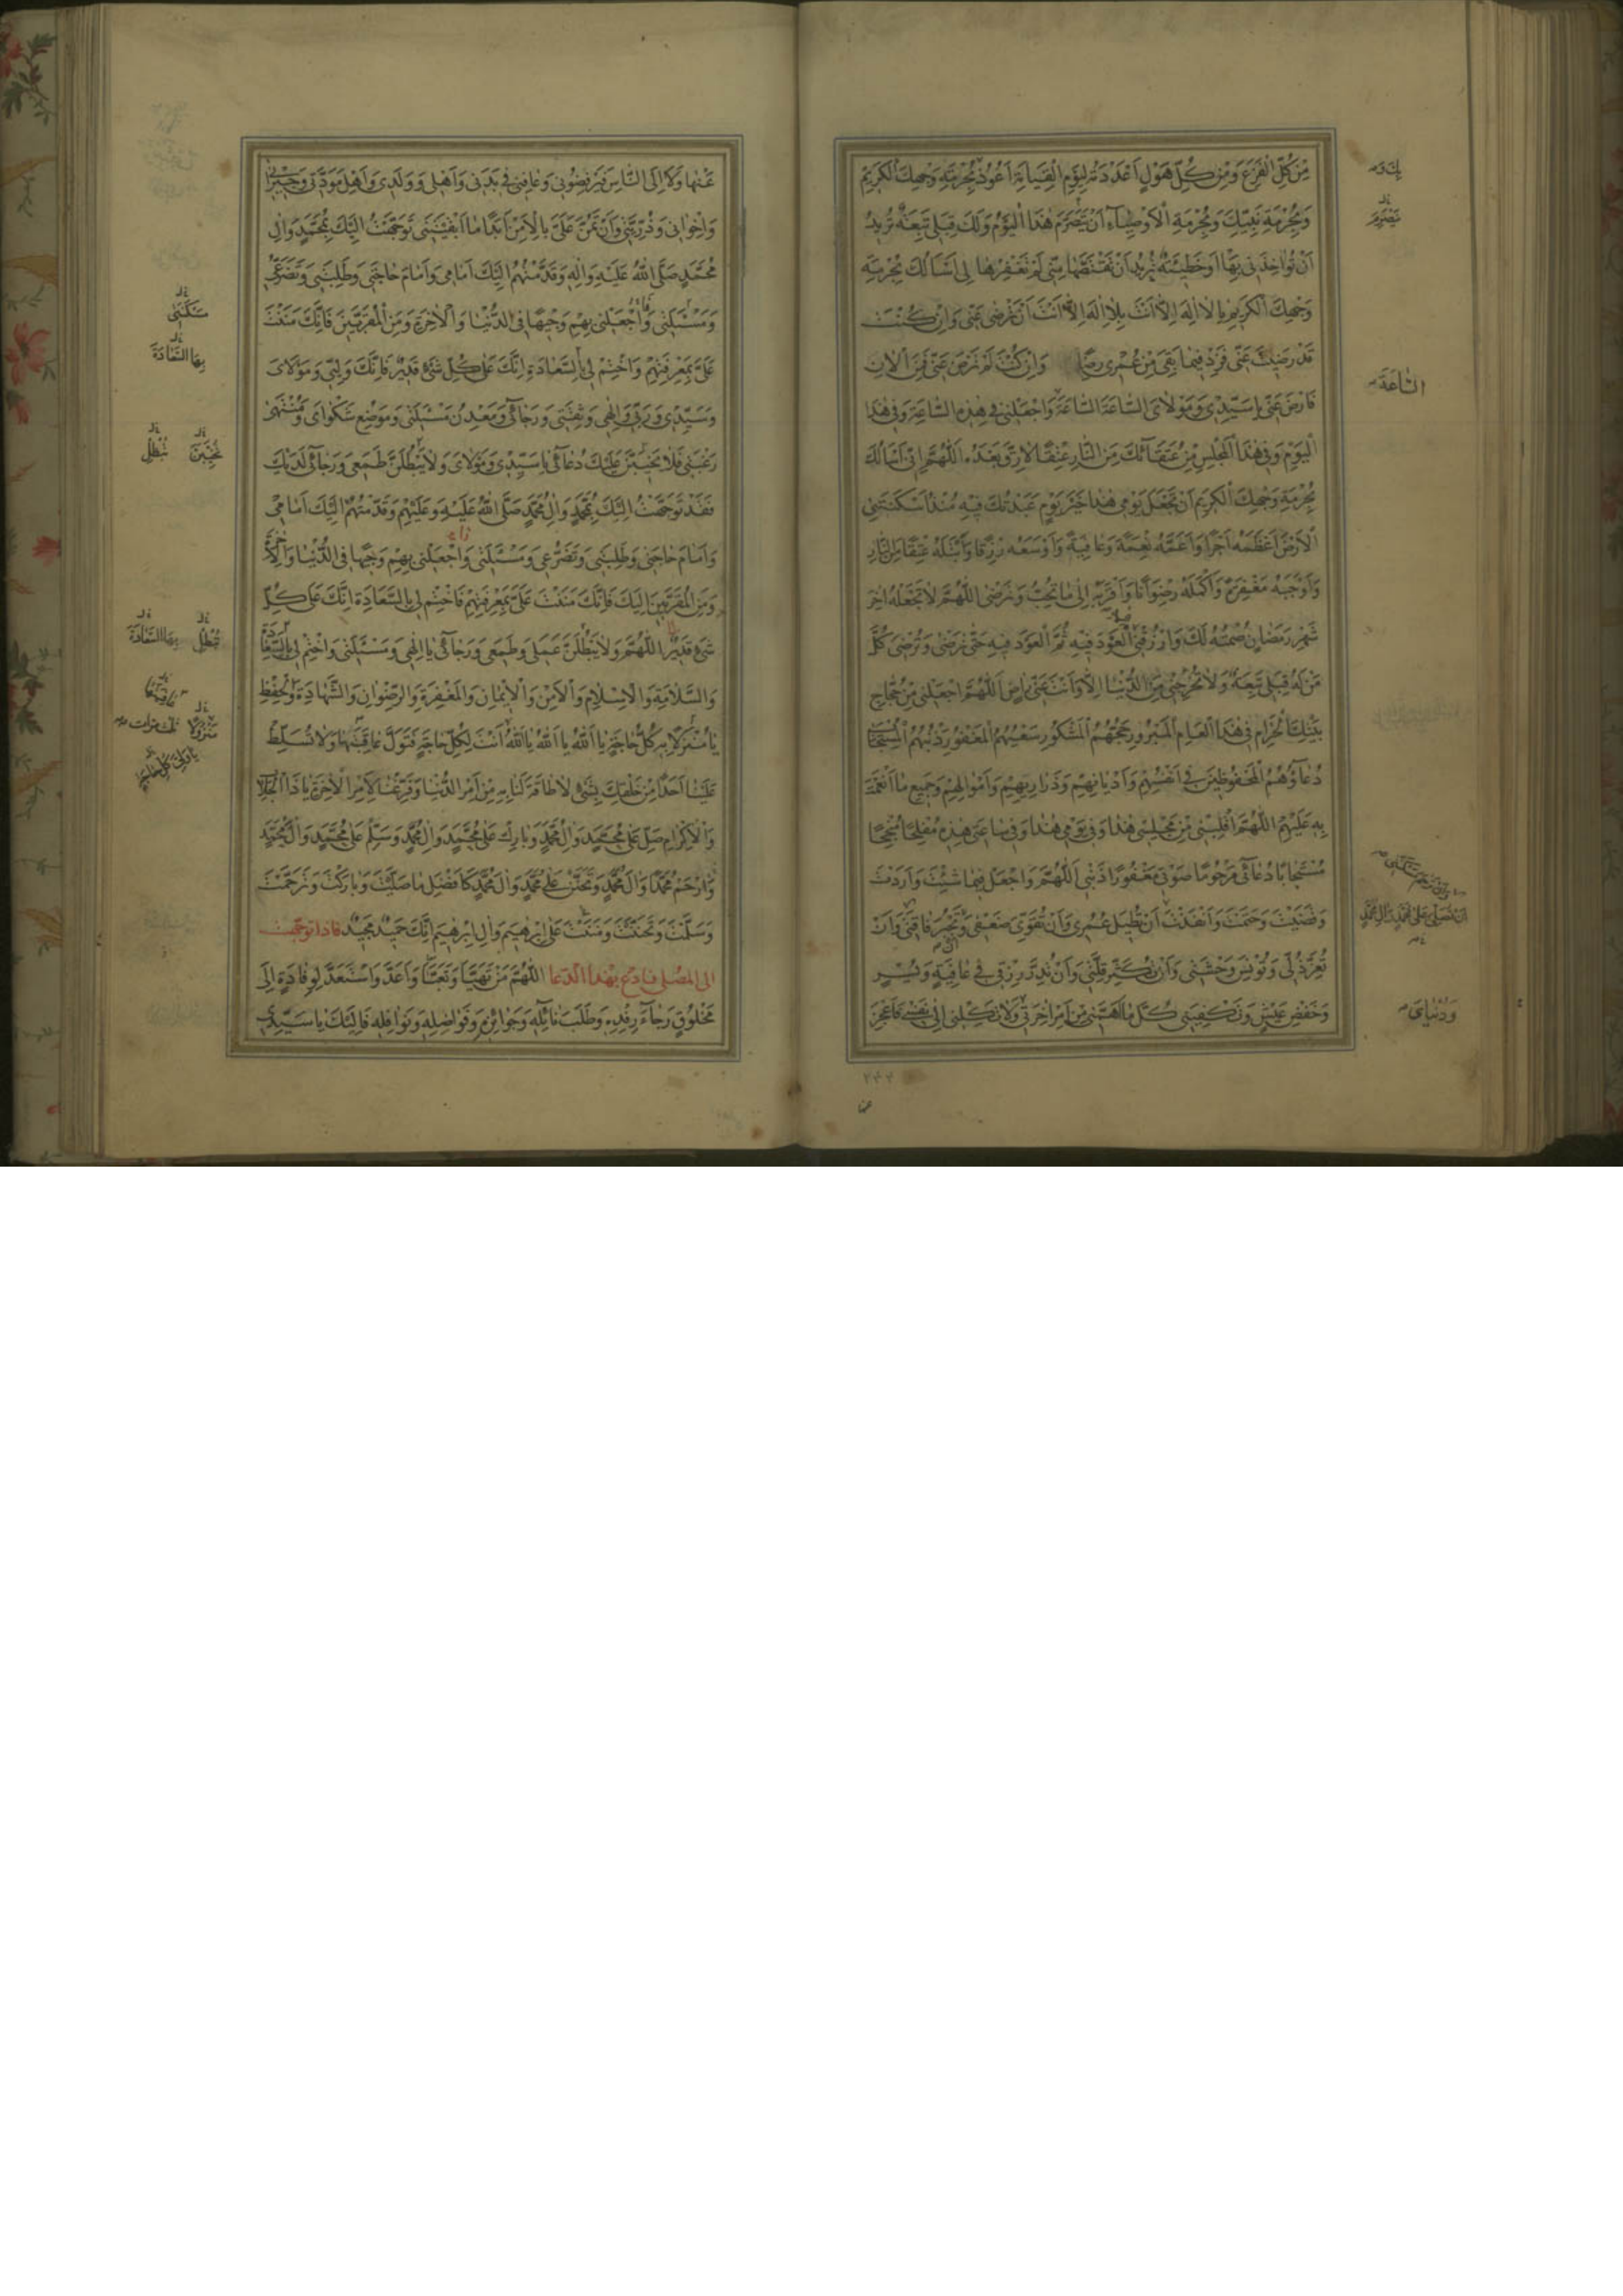 مِنْ كُلِّ الْفَزَعِ وَمِنْ كُلِّ هَوْلٍ اَعْدَدْتَهُ لِيَوْمِ الْقِيٰمَةِ اَعُوذُ بِحُرْمَةِ وَجْهِكَ الْكَرِيمِ
وَبِحُرْمَةِ نَبِيِّكَ وَبِحُرْمَةِ الْاَوْصِيَاءِ اَنْ يَتَصَرَّمَ هٰذَا الْيَوْمُ وَلَكَ قِبَلِى تَبِعَةٌ تُرِيدُ
اَنْ تُؤَاخِذَنِى بِهَا اَوْ خَطِيئَةٌ تُرِيدُ اَنْ تَقْتَصَّهَا مِنِّى لَمْ تَغْفِرْهَا لِى اَسْأَلُكَ بِحُرْمَةِ
وَجْهِكَ الْكَرِيمِ يَا لَا اِلٰهَ اِلَّا اَنْتَ بِلَا اِلٰهَ اِلَّا اَنْتَ اَنْ تَرْضٰى عَنِّى وَاِنْ كُنْتَ
قَدْ رَضِيتَ عَنِّى فَزِدْ فِيمَا بَقِىَ مِنْ عُمْرِى رِضًا وَاِنْ كُنْتَ لَمْ تَرْضَ عَنِّى فَمِنَ الْاٰنِ
فَارْضَ عَنِّى يَا سَيِّدِى وَمَوْلَاىَ السَّاعَةَ السَّاعَةَ وَاجْعَلْنِى فِى هٰذِهِ السَّاعَةِ وَفِى هٰذَا
الْيَوْمِ وَفِى هٰذَا الْمَجْلِسِ مِنْ عُتَقَائِكَ مِنَ النَّارِ عِتْقًا لَا رِقَّ بَعْدَهُ اَللّٰهُمَّ اِنِّى اَسْأَلُكَ
بِحُرْمَةِ وَجْهِكَ الْكَرِيمِ اَنْ تَجْعَلَ يَوْمِى هٰذَا خَيْرَ يَوْمٍ عَبَدْتُكَ فِيهِ مُنْذُ اَسْكَنْتَنِى
الْاَرْضَ اَعْظَمَهُ اَجْرًا وَاَعَمَّهُ نِعْمَةً وَعَافِيَةً وَاَوْسَعَهُ رِزْقًا وَاَبْتَلَهُ عِتْقًا مِنَ النَّارِ
وَاَوْجَبَهُ مَغْفِرَةً وَاَكْمَلَهُ رِضْوَانًا وَاَقْرَبَهُ اِلٰى مَا تُحِبُّ وَتَرْضٰى اللّٰهُمَّ لَا تَجْعَلْهُ اٰخِرَ
شَهْرِ رَمَضَانَ صُمْتُهُ لَكَ وَارْزُقْنِى الْعَوْدَ فِيهِ ثُمَّ الْعَوْدَ فِيهِ حَتّٰى تَرْضٰى وَتُرْضِىَ كُلَّ
مَنْ لَهُ قِبَلِى تَبِعَةٌ وَلَا تُخْرِجْنِى مِنَ الدُّنْيَا اِلَّا وَاَنْتَ عَنِّى رَاضٍ اَللّٰهُمَّ اجْعَلْنِى مِنْ حُجَّاجِ
بَيْتِكَ الْحَرَامِ فِى هٰذَا الْعَامِ الْمَبْرُورِ حَجُّهُمُ الْمَشْكُورِ سَعْيُهُمُ الْمَغْفُورِ ذَنْبُهُمُ الْمُسْتَجَابِ
دُعَاؤُهُمُ الْمَحْفُوظِينَ فِى اَنْفُسِهِمْ وَاَدْيَانِهِمْ وَذَرَارِيهِمْ وَاَمْوَالِهِمْ وَجَمِيعِ مَا اَنْعَمْتَ
بِهِ عَلَيْهِمْ اللّٰهُمَّ اقْلِبْنِى مِنْ مَجْلِسِى هٰذَا وَفِى يَوْمِى هٰذَا وَفِى سَاعَتِى هٰذِهِ مُفْلِحًا مُنْجِحًا
مُسْتَجَابًا دُعَائِى مَرْحُومًا صَوْتِى مَغْفُورًا ذَنْبِى اَللّٰهُمَّ وَاجْعَلْ فِيمَا شِئْتَ وَاَرَدْتَ
وَقَضَيْتَ وَحَتَمْتَ وَاَنْفَذْتَ اَنْ تُطِيلَ عُمُرِى وَاَنْ تُقَوِّىَ ضَعْفِى وَتَجْبُرَ فَاقَتِى وَاَنْ
تُعِزَّ ذُلِّى وَتُونِسَ وَحْشَتِى وَاَنْ تُكَثِّرَ قِلَّتِى وَاَنْ تُدِرَّ رِزْقِى فِى عَافِيَةٍ وَيُسْرٍ
وَخَفْضِ عَيْشٍ وَتَكْفِيَنِى كُلَّ مَا اَهَمَّنِى مِنْ اَمْرِ اٰخِرَتِى وَلَا تَكِلْنِى اِلٰى نَفْسِى فَاَعْجِزَ
السَّاعَةَ
اَنْ تُصَلِّىَ عَلٰى مُحَمَّدٍ وَاٰلِ مُحَمَّدٍ
وَدُنْيَاىَ
۲۴۴
عنها
عَنْهَا وَلَا اِلَى النَّاسِ فَيَرْفُضُونِى وَعَافِنِى فِى بَدَنِى وَاَهْلِى وَوَلَدِى وَاَهْلِ مَوَدَّتِى وَجِيرَانِى
وَاِخْوَانِى وَذُرِّيَّتِى وَاَنْ تَمُنَّ عَلَىَّ بِالْاَمْنِ اَبَدًا مَا اَبْقَيْتَنِى تَوَجَّهْتُ اِلَيْكَ بِمُحَمَّدٍ وَاٰلِ
مُحَمَّدٍ صَلَّى اللّٰهُ عَلَيْهِ وَاٰلِهِ وَقَدَّمْتُهُمْ اِلَيْكَ اَمَامِى وَاَمَامَ حَاجَتِى وَطَلِبَتِى وَتَضَرُّعِى
وَمَسْئَلَتِى وَاجْعَلْنِى بِهِمْ وَجِيهًا فِى الدُّنْيَا وَالْاٰخِرَةِ وَمِنَ الْمُقَرَّبِينَ فَاِنَّكَ مَنَنْتَ
عَلَىَّ بِمَعْرِفَتِهِمْ وَاخْتِمْ لِى بِالسَّعَادَةِ اِنَّكَ عَلٰى كُلِّ شَىْءٍ قَدِيرٌ فَاِنَّكَ وَلِيِّى وَمَوْلَاىَ
وَسَيِّدِى وَرَبِّى وَاِلٰهِى وَثِقَتِى وَرَجَائِى وَمَعْدِنُ مَسْئَلَتِى وَمَوْضِعُ شَكْوَاىَ وَمُنْتَهٰى
رَغْبَتِى فَلَا يَخِيبَنَّ عَلَيْكَ دُعَائِى يَا سَيِّدِى وَمَوْلَاىَ وَلَا يَبْطُلَنَّ طَمَعِى وَرَجَائِى لَدَيْكَ
فَقَدْ تَوَجَّهْتُ اِلَيْكَ بِمُحَمَّدٍ وَاٰلِ مُحَمَّدٍ صَلَّى اللّٰهُ عَلَيْهِ وَعَلَيْهِمْ وَقَدَّمْتُهُمْ اِلَيْكَ اَمَامِى
وَاَمَامَ حَاجَتِى وَطَلِبَتِى وَتَضَرُّعِى وَمَسْئَلَتِى وَاجْعَلْنِى بِهِمْ وَجِيهًا فِى الدُّنْيَا وَالْاٰخِرَةِ
وَمِنَ الْمُقَرَّبِينَ اِلَيْكَ فَاِنَّكَ مَنَنْتَ عَلَىَّ بِمَعْرِفَتِهِمْ فَاخْتِمْ لِى بِالسَّعَادَةِ اِنَّكَ عَلٰى كُلِّ
شَىْءٍ قَدِيرٌ اللّٰهُمَّ وَلَا يَبْطُلَنَّ عَمَلِى وَطَمَعِى وَرَجَائِى يَا اِلٰهِى وَمَسْئَلَتِى وَاخْتِمْ لِى بِالسَّعَادَةِ
وَالسَّلَامَةِ وَالْاِسْلَامِ وَالْاَمْنِ وَالْاِيمَانِ وَالْمَغْفِرَةِ وَالرِّضْوَانِ وَالشَّهَادَةِ وَالْحِفْظِ
يَا مُنْزَلًا بِهِ كُلُّ حَاجَةٍ يَا اَللّٰهُ يَا اَللّٰهُ يَا اَللّٰهُ اَنْتَ لِكُلِّ حَاجَةٍ فَتَوَلَّ عَاقِبَتَهَا وَلَا تُسَلِّطْ
عَلَيْنَا اَحَدًا مِنْ خَلْقِكَ بِشَىْءٍ لَا طَاقَةَ لَنَا بِهِ مِنْ اَمْرِ الدُّنْيَا وَفَرِّغْنَا لِاَمْرِ الْاٰخِرَةِ يَا ذَا الْجَلَالِ
وَالْاِكْرَامِ صَلِّ عَلٰى مُحَمَّدٍ وَاٰلِ مُحَمَّدٍ وَبَارِكْ عَلٰى مُحَمَّدٍ وَاٰلِ مُحَمَّدٍ وَسَلِّمْ عَلٰى مُحَمَّدٍ وَاٰلِ مُحَمَّدٍ
وَارْحَمْ مُحَمَّدًا وَاٰلَ مُحَمَّدٍ وَتَحَنَّنْ عَلٰى مُحَمَّدٍ وَاٰلِ مُحَمَّدٍ كَاَفْضَلِ مَا صَلَّيْتَ وَبَارَكْتَ وَتَرَحَّمْتَ
وَسَلَّمْتَ وَتَحَنَّنْتَ وَمَنَنْتَ عَلٰى اِبْرٰهِيمَ وَاٰلِ اِبْرٰهِيمَ اِنَّكَ حَمِيدٌ مَجِيدٌ فاذا توجهت
الى المصلى فادع بهذا الدعا اللّٰهُمَّ مَنْ تَهَيَّأَ وَتَعَبَّأَ وَاَعَدَّ وَاسْتَعَدَّ لِوِفَادَةٍ اِلٰى
مَخْلُوقٍ رَجَاءَ رِفْدِهِ وَطَلَبَ نَائِلِهِ وَجَوَائِزِهِ وَفَوَاضِلِهِ وَنَوَافِلِهِ فَاِلَيْكَ يَا سَيِّدِى
مَسْكَنَتِى
بِهَا السَّعَادَةَ
تُخَيِّبَنَّ
تُبْطِلْ
تُبْطِلْ
بِهَا السَّعَادَةَ